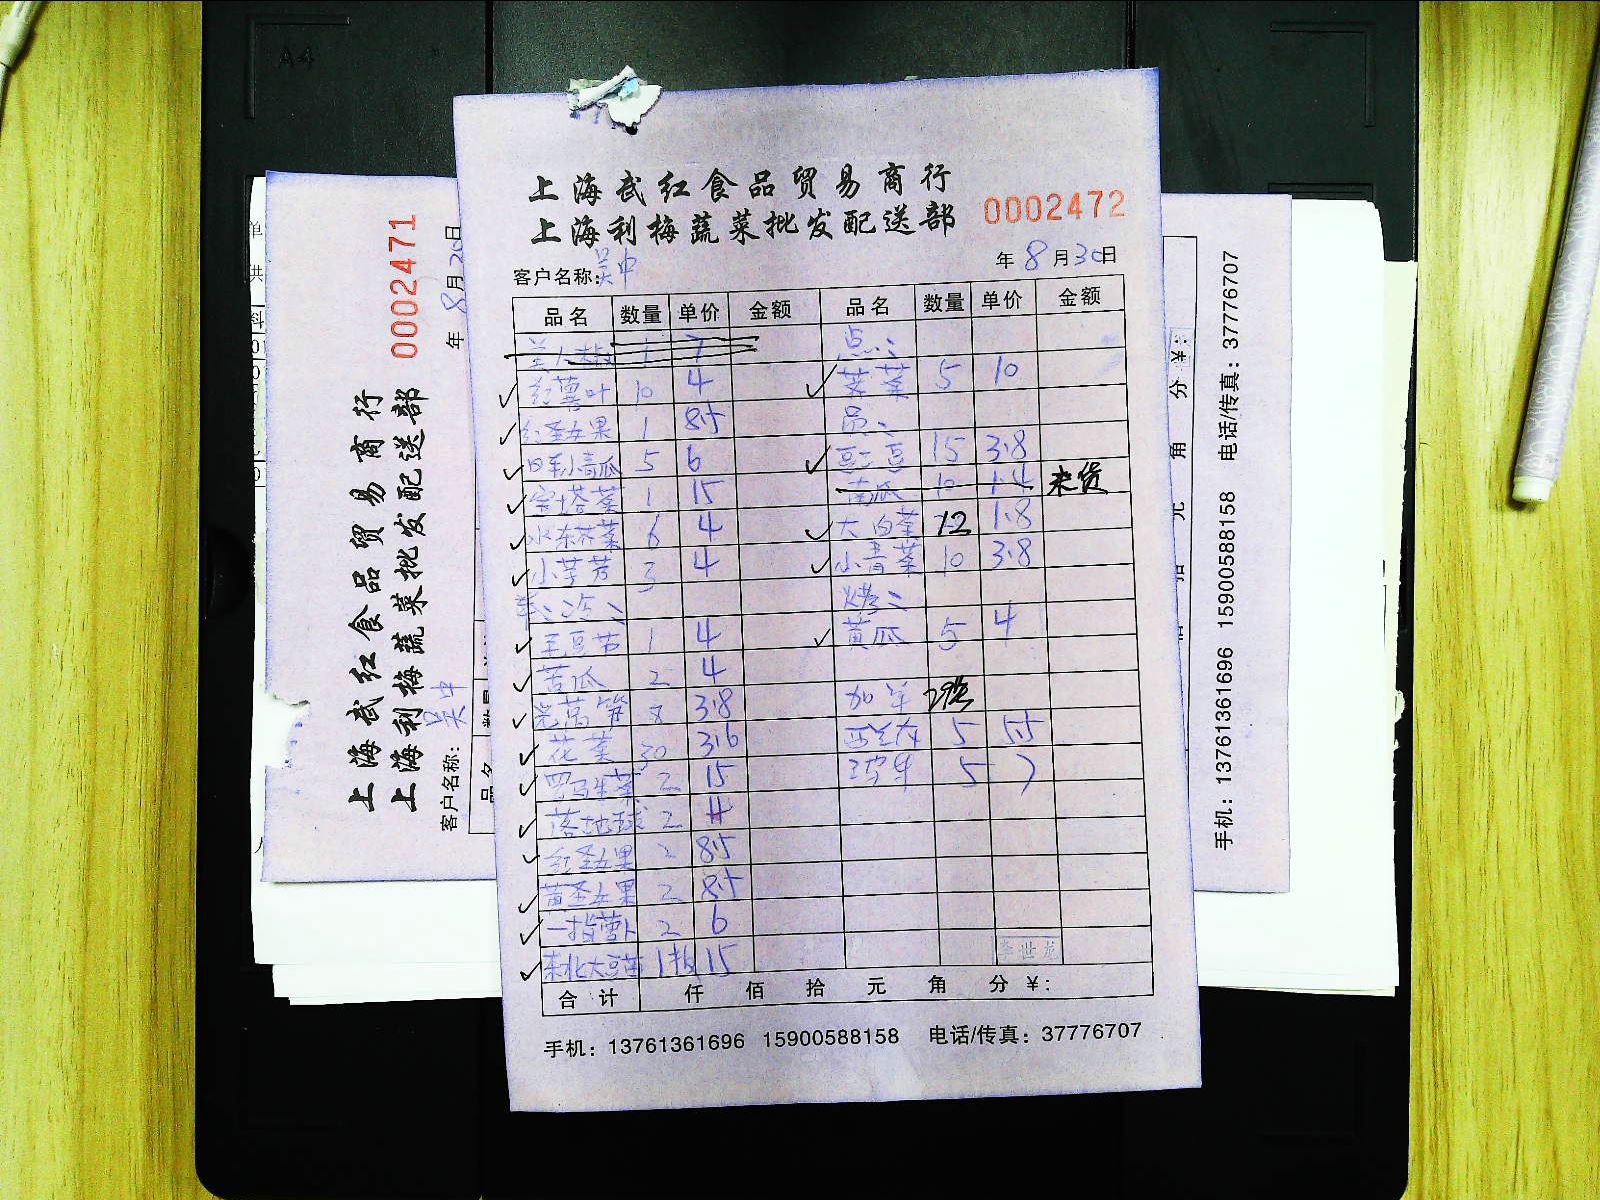 上海武红食品贸易商行
上海利梅蔬菜批发配送部
0002472
客户名称:吴中
年 8 月 30 日
品名 数量 单价 金额 品名 数量 单价 金额
美人椒 1 7 点:
红薯叶 10 4 菜 5 10
红圣女果 1 8.5
日本小青瓜 5 6 豆 15 3.8
宝塔菜 1 15 南瓜 10 1.4 未货
水东芥菜 6 4 大白菜 12 1.8
小芋艿 3 4 小青菜 10 3.8
烧:
毛豆节 1 4 黄瓜 5 4
苦瓜 2 4
莴笋 8 3.8 加单
花菜 30 3.6 西兰花 5 5.5
罗马生菜 2 15 5 7
落地球 2 4
红圣女果 2 8.5
黄圣女果 2 8.5
一指萝卜 2 6
东北大豆 1 15
合计 仟 佰 拾 元 角 分 ¥:
手机: 13761361696 15900588158 电话/传真: 37776707
上海武红食品贸易商行
上海利梅蔬菜批发配送部
0002471
客户名称: 吴中
年 8 月
品名
元 角 分 ¥:
手机: 13761361696 15900588158 电话/传真: 37776707
A4